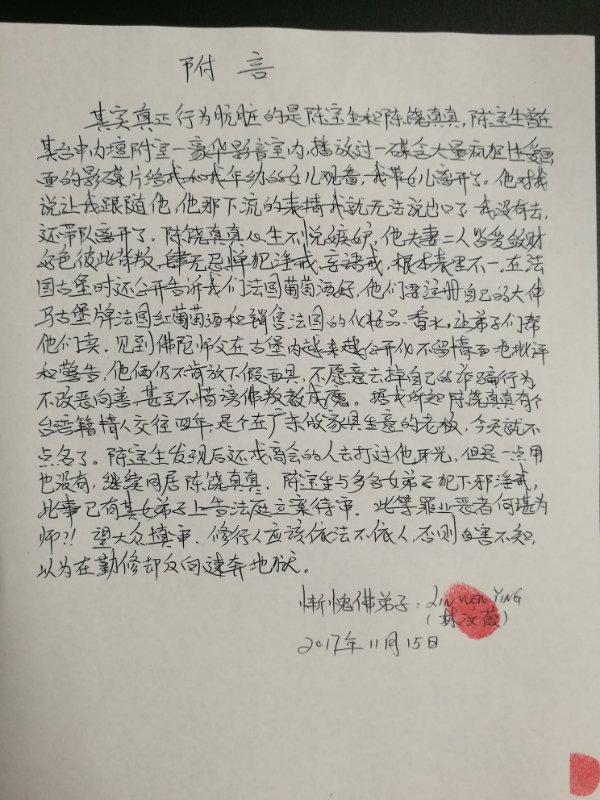 附言
其实真正行为肮脏的是陈宝生和陈饶真真，陈宝生曾在
其台中内坛附室一豪华影音室内，播放过一碟含大量疯狂性爱画
面的影碟片给我和我年幼的女儿观看，我带女儿离开了。他对我
说让我跟随他，他那下流的表情我就无法说出口了，我没有去，
还带队离开了。陈饶真真心生不悦嫉妒，他夫妻二人皆爱敛财
好色彼此，肆无忌惮犯淫戒，妄语戒，根本表里不一。在法
国古堡时还公开告诉我们法国葡萄酒好，他们要注册自己的大伟
马古堡牌法国红葡萄酒和销售法国的化妆品、香水，让弟子们帮
他们卖。见到佛陀师父在古堡内越来越公开化不留情面地批评
和警告，他俩仍不肯放下假面具，不愿意去掉自己的诈骗行为
不改恶向善，甚至不惜谤佛教成魔。据我所知陈饶真真有个
台湾籍情人交往四年，是个在广东做家具生意的老板，今天就不
点名了。陈宝生发现后还找商会的人去打过他耳光，但是一点用
也没有，继续同居陈饶真真。陈宝生与多名女弟子犯下邪淫戒，
此事已有其女弟子上告法庭立案待审。此等罪业恶者何堪为
师？！望大众慎审，修行人应该依法不依人，否则自害不知，
以为在勤修却反向速奔地狱。
惭愧佛弟子：LIN WEN YING
（林汶）
2017年11月15日